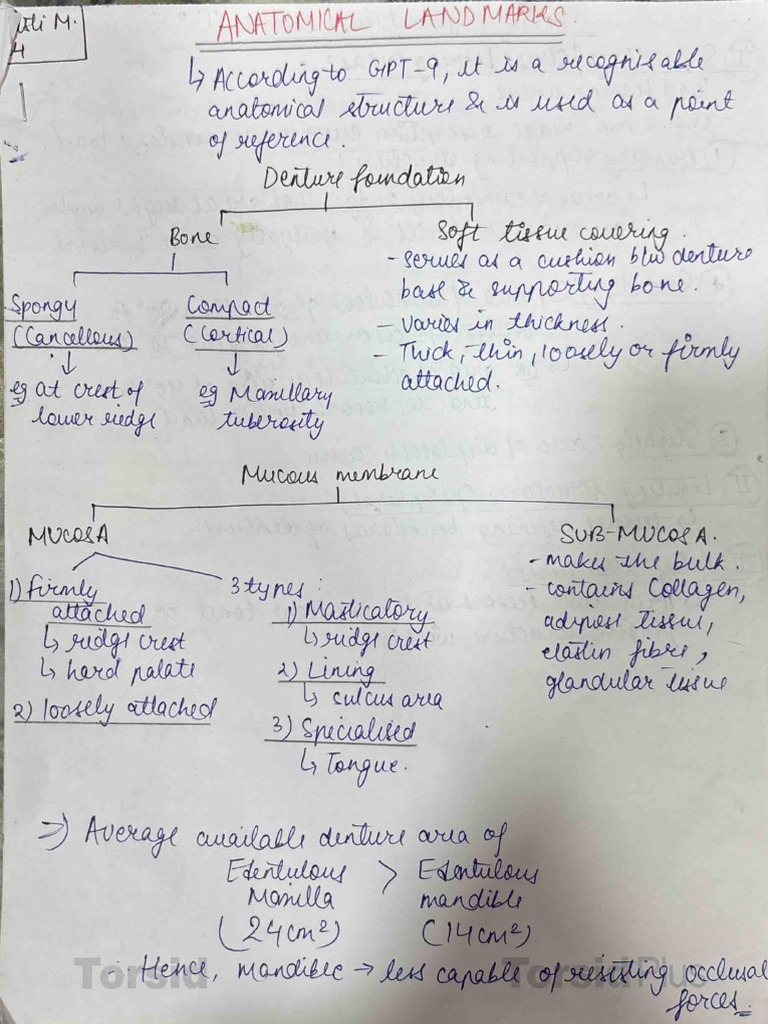 ANATOMICAL LANDMARKS.
↳ According to GPT-9, it is a recognisable
anatomical structure & is used as a point
of reference.
Denture foundation
Bone
Spongy
(Cancellous)
↓
eg at crest of
lower ridge
Compact
(Cortical)
↓
eg Maxillary
tuberosity
Soft tissue covering.
- serves as a cushion b/w denture
base & supporting bone.
- Varies in thickness.
- Thick, thin, loosely or firmly
attached.
Mucous membrane
MUCOSA
1) firmly
attached
↳ ridge crest
↳ hard palate
2) loosely attached
3 types:
1) Masticatory
↳ ridge crest
2) Lining
↳ sulcus area
3) Specialised
↳ Tongue.
SUB-MUCOSA.
- makes the bulk.
- contains Collagen,
adipose tissue,
elastin fibre,
glandular tissue
⇒ Average available denture area of
Edentulous > Edentulous
Maxilla mandible
(24cm²) (14cm²)
Hence, mandible → less capable of resisting occlusal
forces.